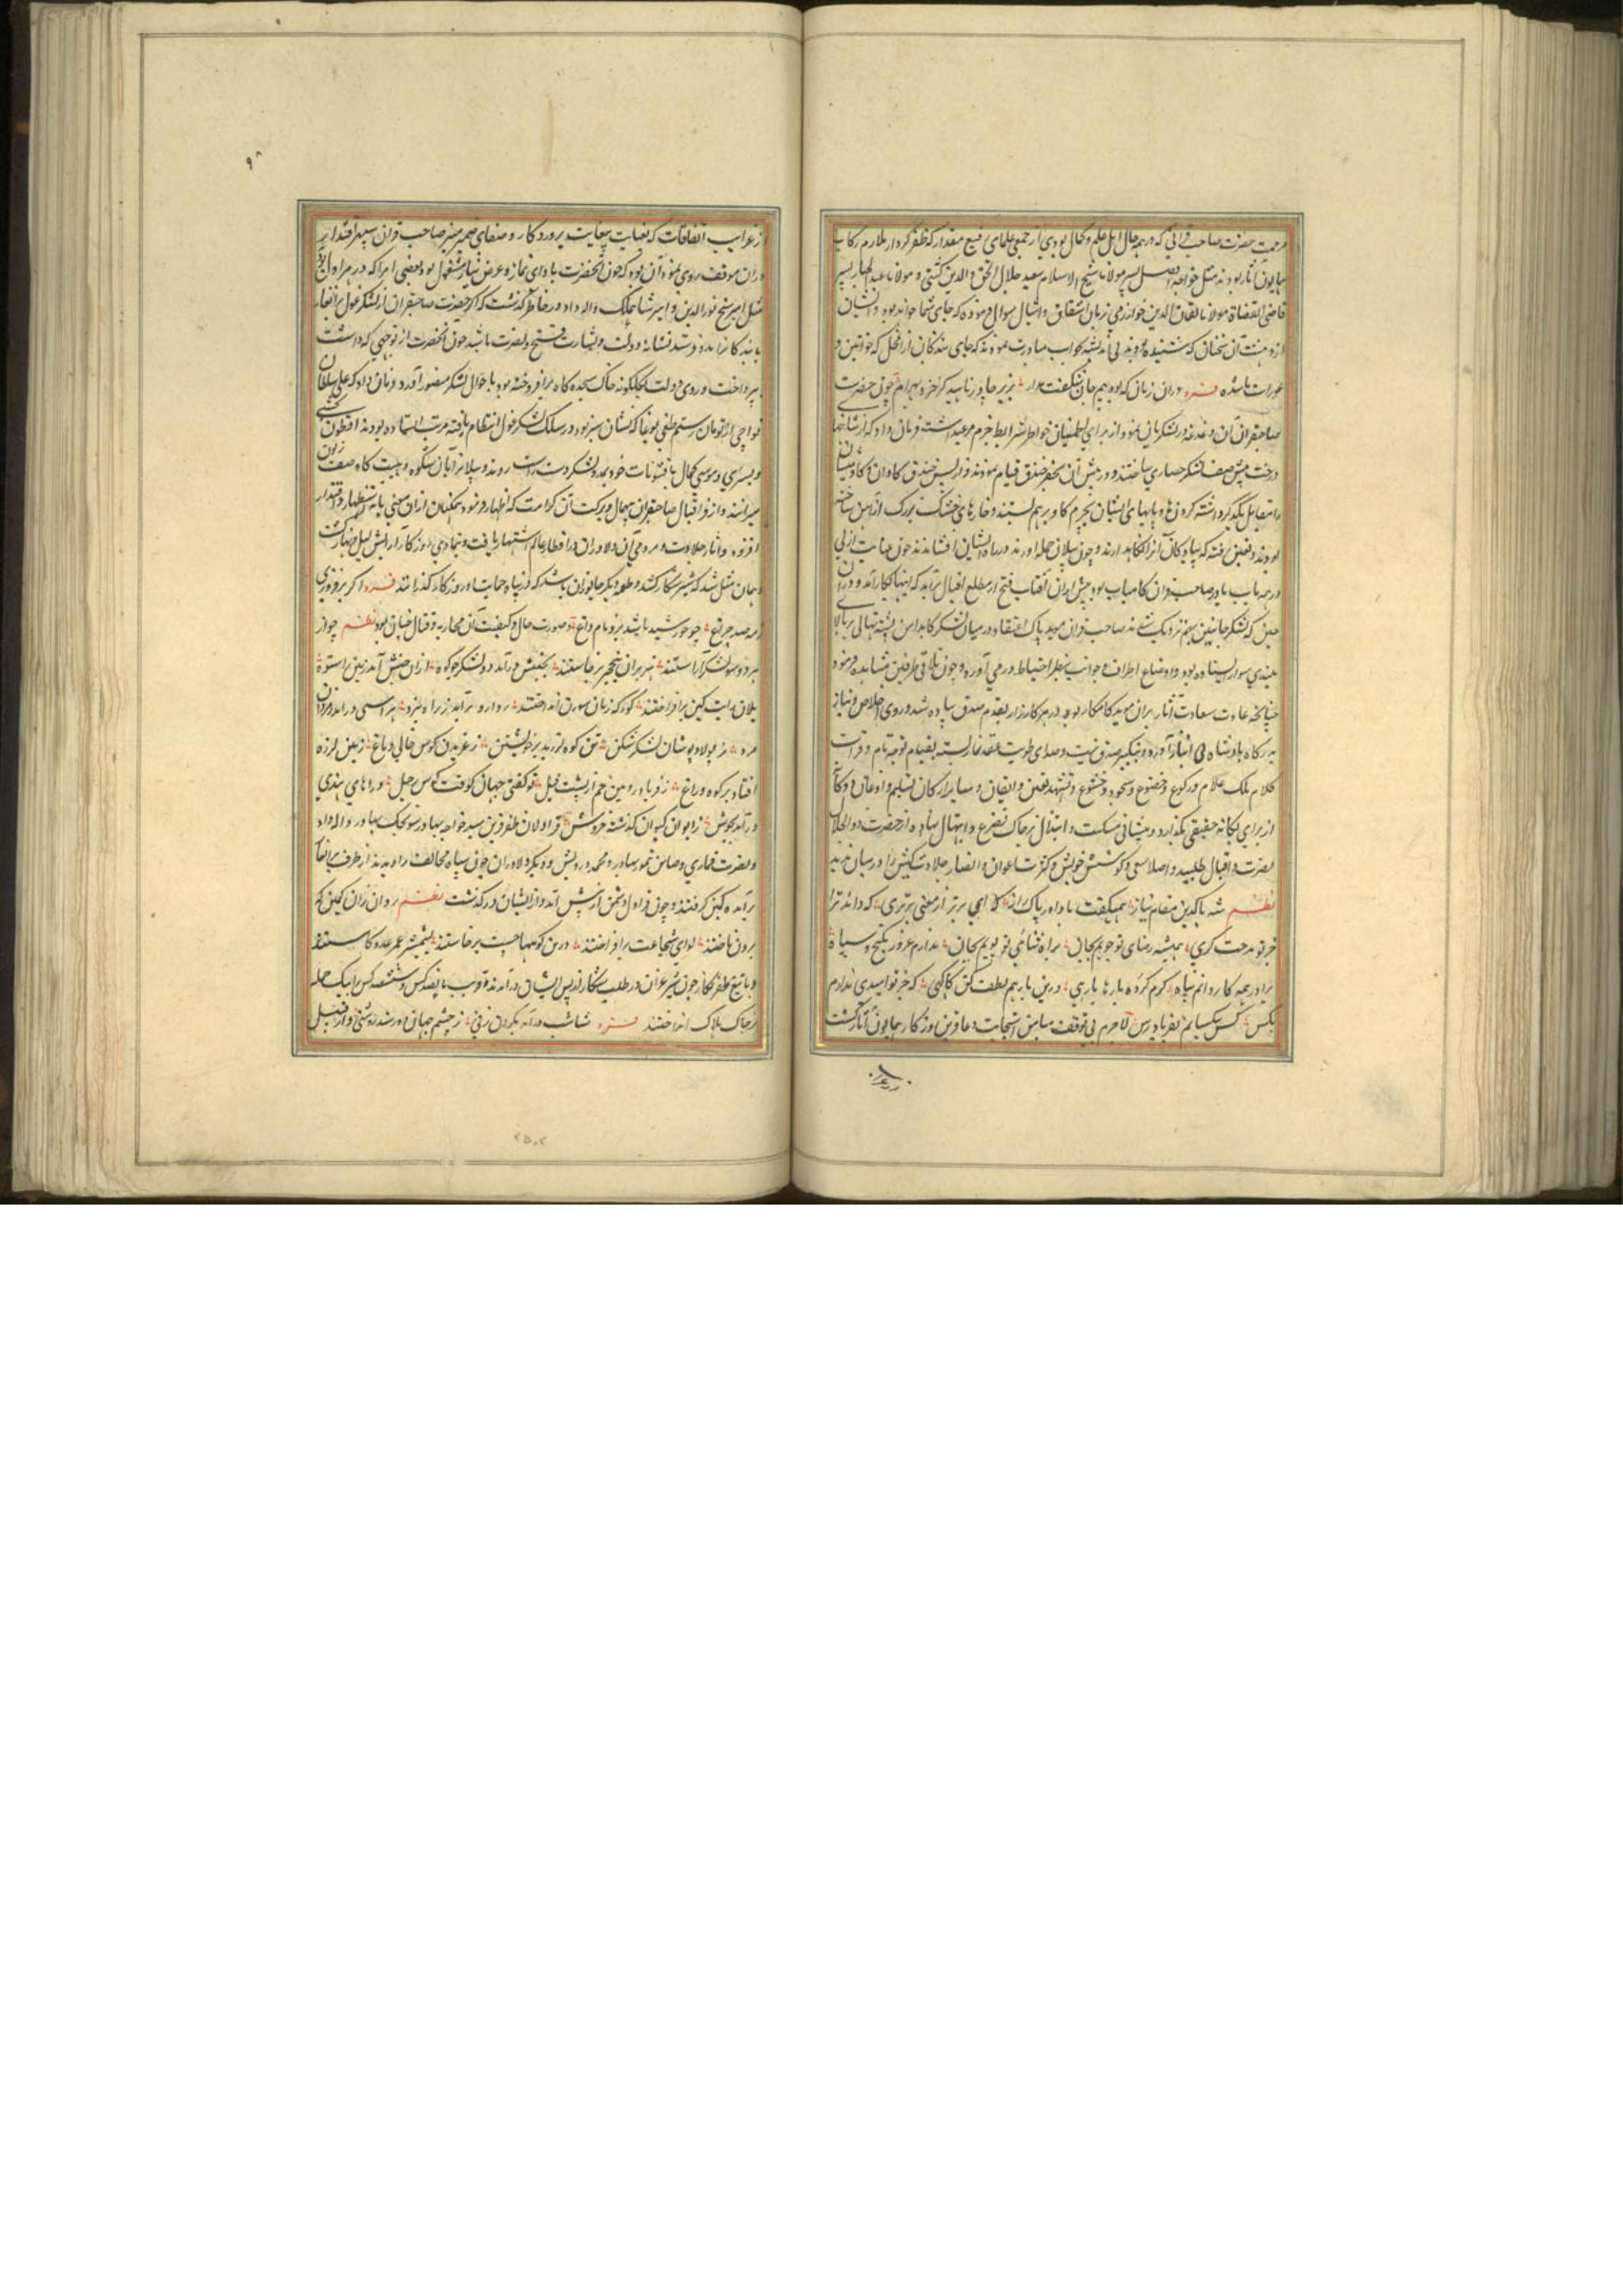 مرحمت حضرت صاحب قرانی که در همه حال اهل علم و کمال بودی از جمعی علمای رفیع مقدار که ظفر کردار ملازم رکاب
همایون آثار بودند مثل خواجه افضل پسر مولانا شیخ الاسلام سعید جلال الحق و الدین کشی و مولانا عبد الجبار پسر
قاضی القضاة مولانا نعمان الدین خوارزمی زبان اشفاق و افضال سوال فرموده که جای شما خواهد بود و ایشان
از دهشت آن سخنان که شنیده بودند بی اندیشه بجواب مبادرت نمودند که جای بندگان از آن محل که خواتین و
عورات باشند فرد در آن زمان که بود بیم جان شگفت مدار بزیر چادر ناهید گر خزد بهرام چون حضرت
صاحبقران آن دغدغه در لشکریان بنمود از برای اطمینان خواطر شرایط حزم مرعی داشته فرمان داد که از شاخها
درخت پیش صف لشکر حصاری ساختند و در پیش آن بحفر خندق قیام نمودند و از پس خندق گاوان و گاومیشان
را متقابل یکدیگر داشته گردنها و پایهای ایشان بچرم گاو برهم بستند و خارهای خسک بزرگ از آهن ساخته
بودند و تعیین رفته که پیادگان آنرا نگاه دارند و چون پیلان حمله آورند در راه ایشان افشانند چون عنایت ازلی
در همه باب یاور صاحب قران کامیاب بود پیش از آن آفتاب فتح از مطلع اقبال برآید که اینها بکار آمد و در آن
حین که لشکر جانبین بهم نزدیک شدند صاحب قران موید پاک اعتقاد در میان لشکرگاه بدامن پشته بهالی بر بالای
بلندی سوار ایستاده بود و اوضاع اطراف و جوانب بنظر احتیاط در می آورد و چون تلاقی طرفین مشاهده فرمود
چنانچه عادت سعادت آثار بران موید کامکار بود در هر کارزار بقدم صدق پیاده شد و روی اخلاص و نیاز
بدرگاه پادشاه بی انباز آورد و بتکبیر صدق نیت و صفای طویت عقد نماز بسته بقیام توجه تام و قرائت
کلام ملک علام و رکوع و خضوع و سجود و خشوع و تشهد یقین و ایقان و سایر ارکان تسلیم و اذعان دوگانه
از برای یگانه حقیقی بگذارد و پیشانی مسکنت و ابتذال بر خاک تضرع و ابتهال نهاده از حضرت ذوالجلال
نصرت و اقبال طلبید و اصلا سعی و کوشش خویش و کثرت اعوان و انصار جلادت کیش را در میان ندید
نظم شه پاک دین در مقام نیاز همیگفت با داور پاک راز که ای برتر از معنی برتری که داند ترا
جز تو مدحت گری همیشه رضای تو جویم بجان براه ثنای تو پویم بجان ندارم غرور بگنج و سپاه
ترا در همه کار دانم پناه کرم کرده بارها یاری درین بار هم لطف کن کآگهی که جز تو امیدی ندارم
بکس کس بیکسانم بفریاد رس لاجرم بی توقف میامن استجابت دعا قرین روزگار همایون آثار گشت
و از غرایب
۹۸
از غرایب اتفاقات که بعنایت بیغایت پروردگار و صفای ضمیر منیر صاحب قران سپهر اقتدار
در آن موقف روی نمود آن بود که چون آنحضرت بادای نماز و عرض نیاز مشغول بود بعضی امرا که در هراول بودند
مثل امیر شیخ نورالدین و امیر شاهملک و الله داد در خاطر گذشت که اگر حضرت صاحبقران از لشکر غول برانغار
بابندگان مدد فرستد نشانه دولت و بشارت فتح و نصرت باشد چون آنحضرت از توجهی که داشت
بپرداخت و روی دولت که بگلگونه خاک سجده گاه برافروخته بود باحوال لشکر منصور آورد فرمان داد که علی سلطان
تواچی از تومان رستم طغی بوغا که نشان سبز بود در سلک لشکر غول انتظام یافته مرتب ایستاده بودند افطون کشی
و بسری و موسی کمال با قشونات خود بمدد لشکر دست راست روند و پیلان را بآن شکوه و هیبت که از صف بیرون
میرانند و از فر اقبال صاحبقران بیهمال و برکت آن کرامت که اظهار فرمود همگنان از آن معنی با استظهار و اقتدار
افزود و آثار جلادت و مردمی آن دلاوران در اقطار عالم اشتهار یافت و بتمادی روزگار آرایش لیل و نهار گشت
و همان مثل شد که شیر شکار کشد و طعمه دیگر جانوران باشد که در پناه حمایت او روزگار گذرانند فرد اگر برفروزی
ز مه صد چراغ چو خورشید باشد برو نام داغ و صورت حال و کیفیت آن محاربه و قتال چنان بود نظم چو از
هر دو سو لشکر آراستند هژبران نخجیر برخاستند بجنبش درآمد دو لشکر چو کوه از آن جنبش آمد زمین را ستوه
یلان رایت کین برافراختند گورکه زنان سورن انداختند روارو برآمد ز راه نبرد هراسی درآمد بمردان
مرد ز پولاد پوشان لشکر شکن تن کوه لرزید بر خویشتن ز غریدن کوس خالی دماغ زمین لرزه
افتاد بر کوه و راغ ز فریاد رومین خم از پشت پیل تو گفتی جهان کوفت کوس رحیل دراهای هندی
درآمد بجوش ز ایوان کیوان گذشته خروش قراولان ظفر قرین سید خواجه بهادر سونجک بهادر و الله داد
و نصرت قماری و صاین تمور بهادر و محمد درویش و دیگر دلاوران چون سپاه مخالف را دیدند از طرف برانغار
برآمده کمین گرفتند و چون قراول دشمن از پیش آمد و از ایشان درگذشت نظم روان زان کمین گه
برون تاختند لوای شجاعت برافراختند در آن کوهها چست برخاستند بشمشیر عمر عدو کاستند
و با تیغ ظفر نگار چون شیر غران در طلب شکار از پس ایشان درآمدند قریب پانصد کس و ششصد کس را بیک حمله
در خاک هلاک انداختند فرد شتاب درآمد بگردن زنی ز چشم جهان دور شد روشنی و از قبل
۲۵۰۲